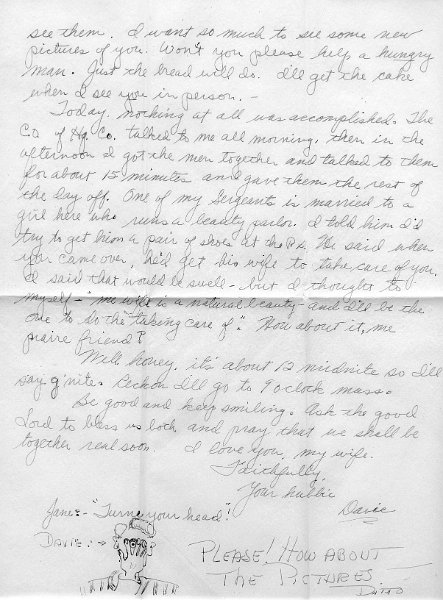 see them. I want so much to see some new
pictures of you. Won't you please help a hungry
man. Just the bread will do. I'll get the cake
when I see you in person. -
Today, nothing at all was accomplished. The
CO of Hq. Co. talked to me all morning, then in the
afternoon I got the men together and talked to them
for about 15 minutes and gave them the rest of
the day off. One of my Sergeants is married to a
girl here who runs a beauty parlor. I told him I'd
try to get him a pair of shoes at the P.X. He said when
you came over, he'd get his wife to take care of you.
I said that would be swell - but I thought to
myself - "me wife is a natural beauty - and I'll be the
one to do the "taking care of". How about it, me
prairie friend?
Well honey, it's about 12 midnite so I'll
say g'nite. Reckon I'll go to 9 o'clock mass.
Be good and keep smiling. Ask the good
Lord to bless us both and pray that we shall be
together real soon. I love you, my wife.
Faithfully,
Your hubbie
Davie
Jane:- "Turn your head"!
DAVIE:→
PLEASE! HOW ABOUT
THE PICTURES.
DITTO